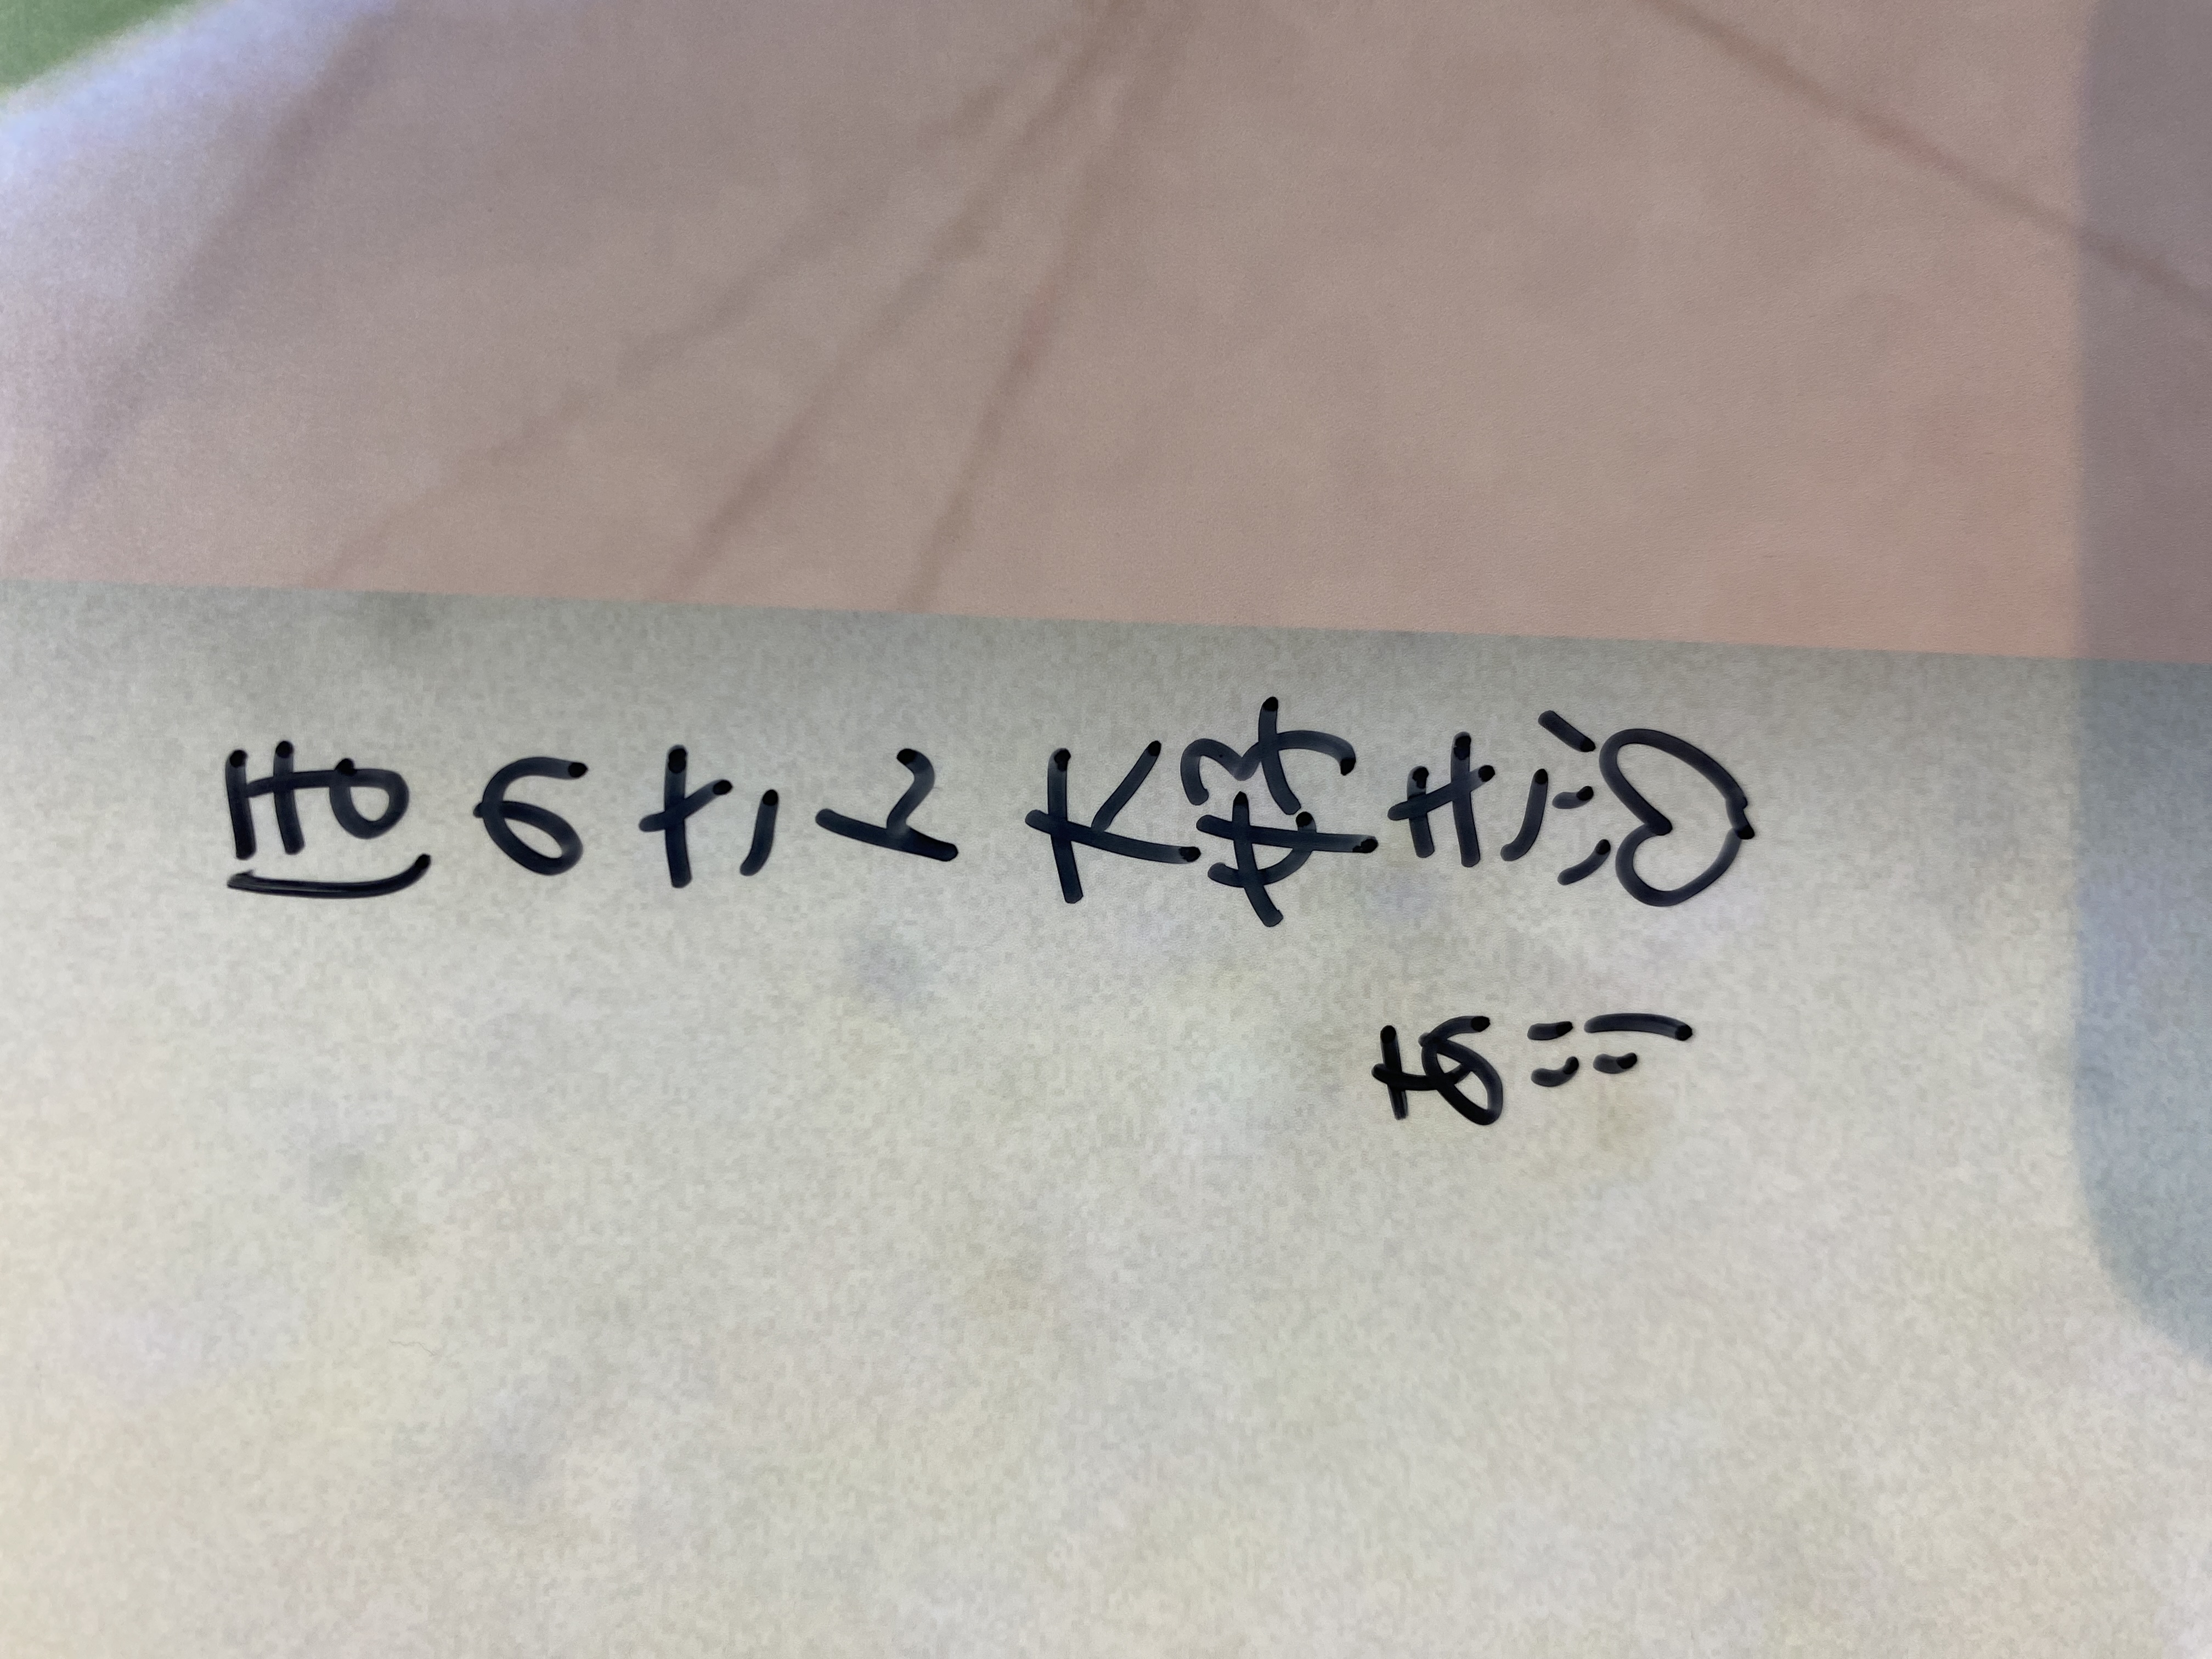 ほのさん大好き♡
あいり